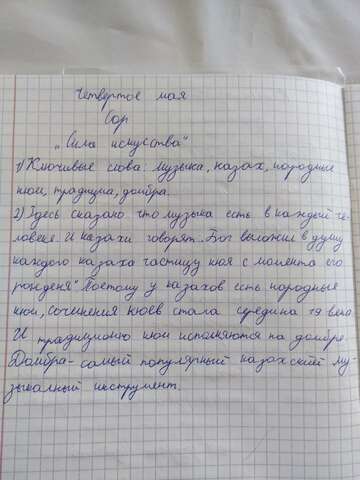 Четвертое мая
Сор
„Сила искуства"
1) Ключивые слова: музыка, казах, народные
кюи, традициа, домбра.
2) Здесь сказано что музыка есть в каждый че-
ловеке. И казахи говорят „Бог выложил в душу
каждого казаха частицу кюя с момента его
рожденя". Поэтому у казахов есть народные
кюи, сочинения кюев стала средина 19 века
И традиционо кюи исполняются на домбре.
Домбра - самый популярный казахский му-
зыкалный инструмент.